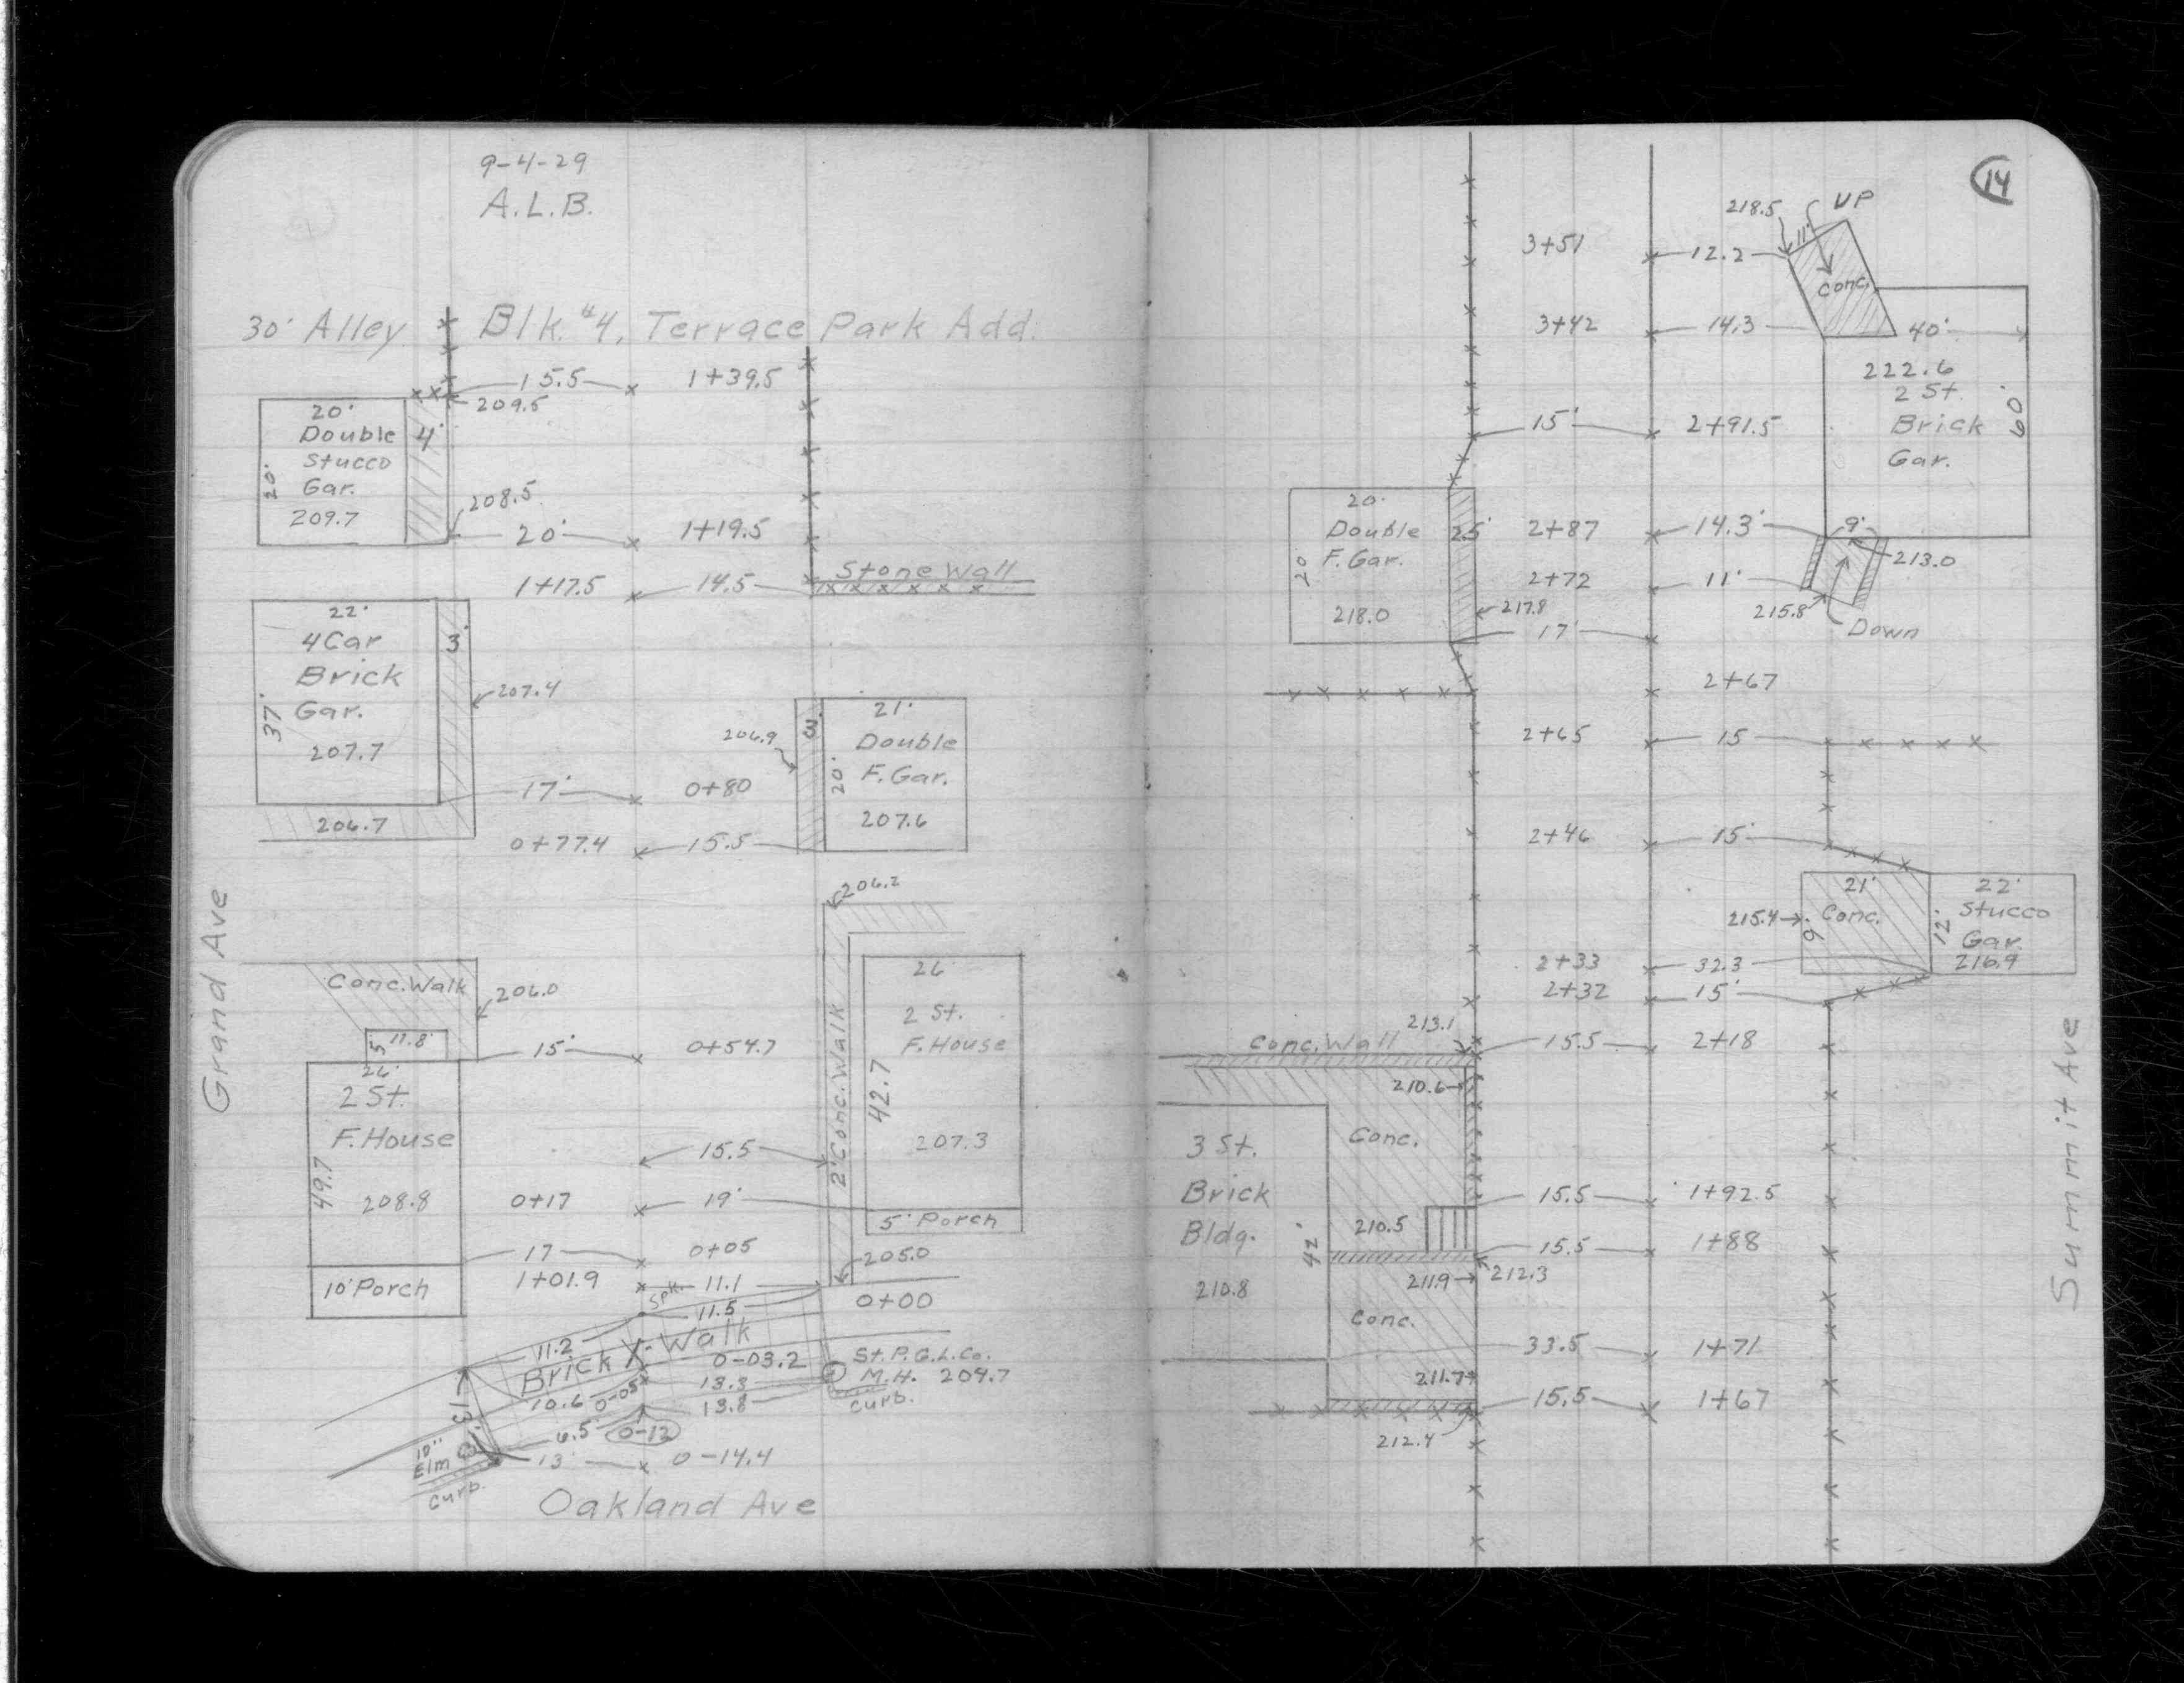 9-4-29
A.L.B.
30' Alley Blk. #4, Terrace Park Add.
15.5 1+39.5
209.5
20'
Double 4'
Stucco
Gar.
20'
209.7
208.5
20' 1+19.5
Stone Wall
1+17.5 14.5
22'
4 Car 3'
Brick
Gar.
37'
207.7
207.4
206.7
21'
Double
F. Gar.
20'
207.6
3'
206.9
17' 0+80
0+77.4 15.5
206.2
Grand Ave
Conc. Walk
206.0
5' 11.8'
15' 0+54.7
26'
2 St.
F. House
49.7
208.8
10' Porch
26'
2 St.
F. House
42.7
207.3
5' Porch
2' Conc. Walk
15.5
0+17 19'
17 0+05
205.0
1+01.9 11.1
Spk.
11.5
0+00
11.2
Brick X-Walk
0-03.2
St. P. G. L. Co.
M.H. 204.7
Curb.
10.6 0-05 13.3
13.8
13'
6.5 0-12
10"
Elm
Curb.
13' 0-14.4
Oakland Ave
14
UP
218.5
11'
Conc.
3+51 12.2
3+42 14.3
40'
222.6
2 St.
Brick
Gar.
60'
15' 2+91.5
20'
Double
F. Gar.
20'
218.0
2.5'
2+87 14.3'
9'
213.0
2+72 11'
217.8
215.8
Down
17'
2+67
2+65 15
2+46 15'
21'
Conc.
215.4
9'
22'
Stucco
Gar.
12'
216.9
2+33 32.3
2+32 15'
213.1
Conc. Wall 15.5 2+18
210.6
Conc.
3 St.
Brick
Bldg.
42'
210.8
15.5 1+92.5
210.5
15.5 1+88
211.9 212.3
Conc.
33.5 1+71
211.7
15.5 1+67
212.4
Summit Ave